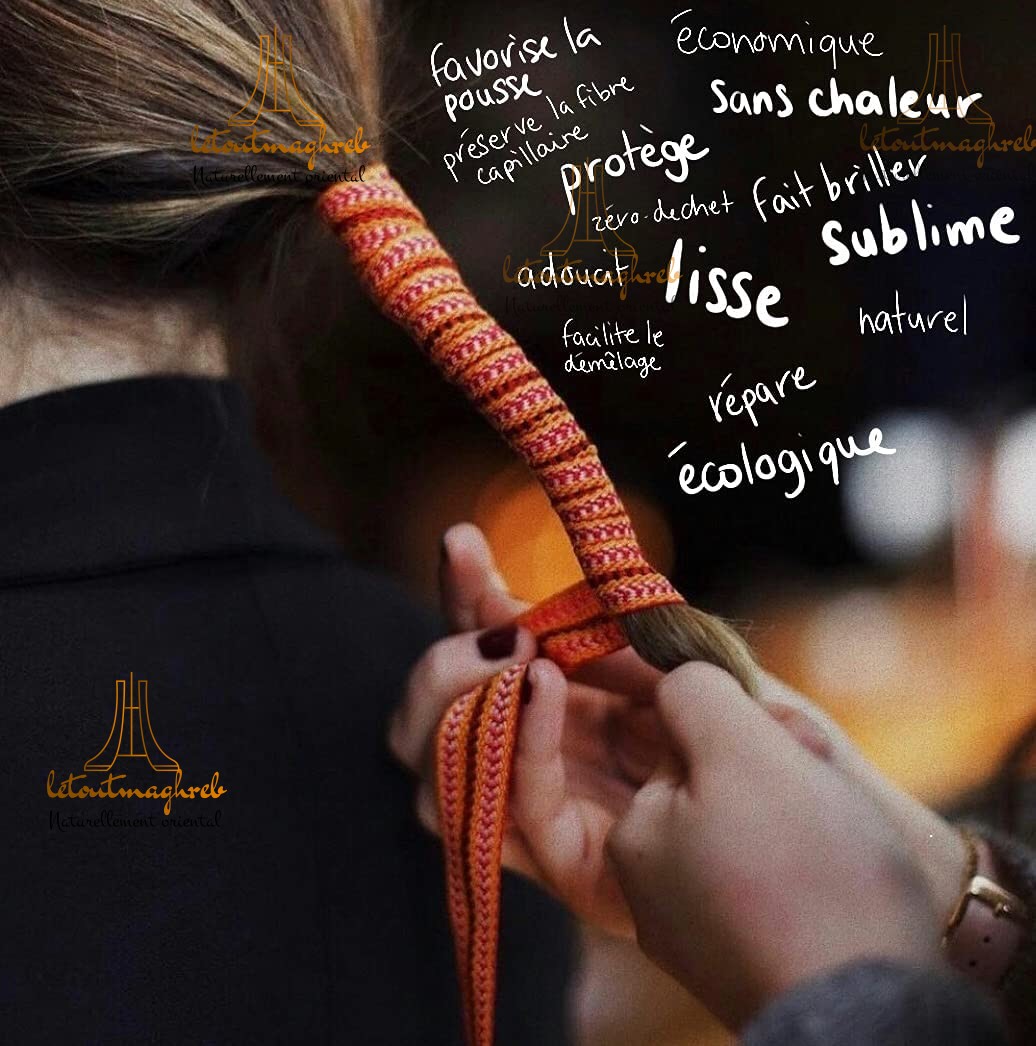 favorise la
pousse
préserve la fibre
capillaire
économique
sans chaleur
protège
zéro-dechet
fait briller
sublime
adoucit
lisse
naturel
facilite le
démêlage
répare
écologique
letoutmaghreb
Naturellement oriental
letoutmaghreb
letoutmaghreb
letoutmaghreb
Naturellement oriental